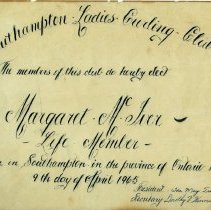 Southampton Ladies Curling Club
The members of this club do hereby elect
Margaret McIver
- Life Member -
in Southampton in the province of Ontario
9th day of April 1965
President
Secretary Dorothy